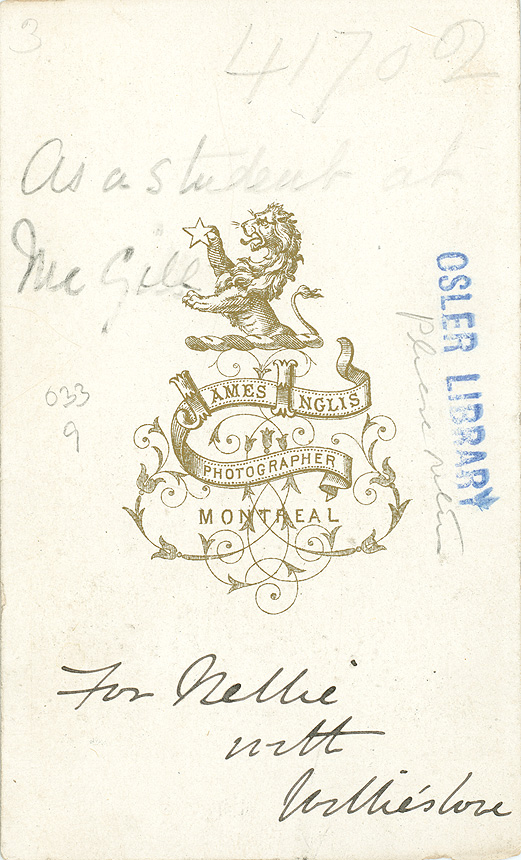 3
41702
As a student at
McGill
JAMES INGLIS
PHOTOGRAPHER
MONTREAL
OSLER LIBRARY
Please return
033
9
For Nellie
with
Willie's love